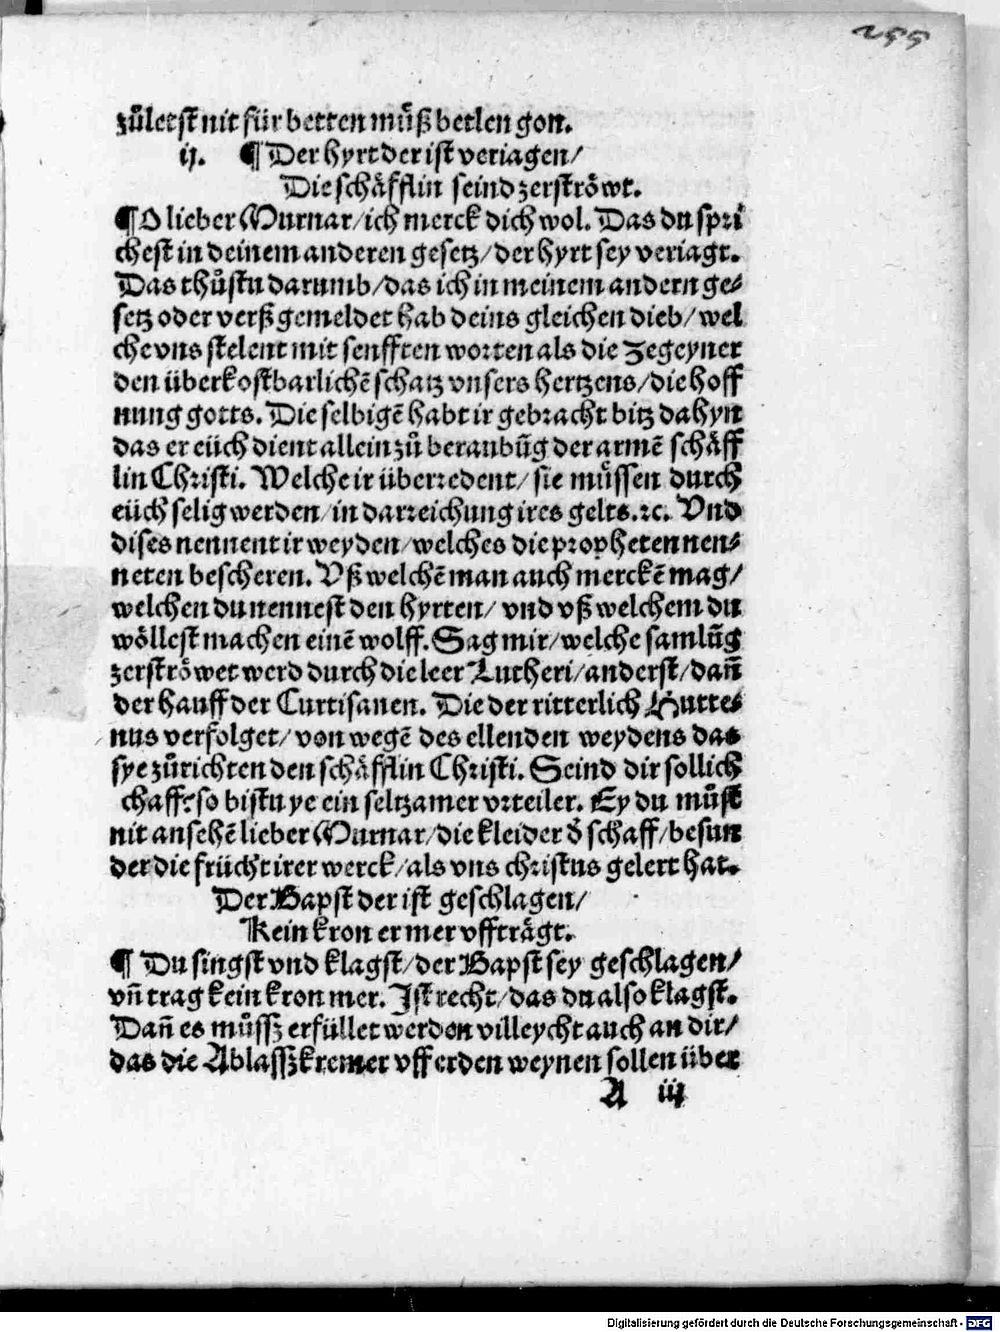 255
zůletst nit für betten můß betlen gon.
ij. ¶ Der hyrt der ist veriagen/
Die schäfflin seind zerströwt.
¶ O lieber Murnar/ich merck dich wol. Das du spri
chest in deinem anderen gesetz/der hyrt sey veriagt.
Das thůstu darumb/das ich in meinem andern ge⸗
setz oder verß gemeldet hab deins gleichen dieb/wel
che vns stelent mit senfften worten als die Zegeyner
den überkostbarlichē schatz vnsers hertzens/die hoff
nung gotts. Die selbigē habt ir gebracht bitz dahyn
das er eüch dient allein zů beraubūg der armē schäff
lin Christi. Welche ir überredent/sie müssen durch
eüch selig werden/in darreichung ires gelts.ꝛc. Vnd
dises nennent ir weyden/welches die propheten nen⸗
neten bescheren. Vß welchē man auch merckē mag/
welchen du nennest den hyrten/vnd vß welchem du
wöllest machen einē wolff. Sag mir/welche samlūg
zerströwet werd durch die leer Lutheri/anderst/dañ
der hauff der Curtisanen. Die der ritterlich Hutte⸗
nus verfolget/von wegē des ellenden weydens das
sye zůrichten den schäfflin Christi. Seind dir sollich
schaff? so bistu ye ein seltzamer vrteiler. Ey du můst
nit ansehē lieber Murnar/die kleider d̕ schaff/besun
der die frücht irer werck/als vns christus gelert hat.
Der Bapst der ist geschlagen/
Kein kron er mer vffträgt.
¶ Du singst vnd klagst/der Bapst sey geschlagen/
vñ trag kein kron mer. Ist recht/das du also klagst.
Dañ es můssz erfüllet werden villeycht auch an dir/
das die Ablasszkremer vff erden weynen sollen über
A iij
Digitalisierung gefördert durch die Deutsche Forschungsgemeinschaft - DFG